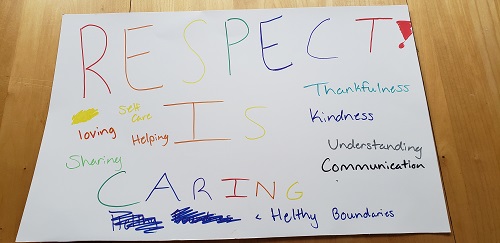 RESPECT!
Self Care
loving
Helping
IS
Thankfulness
Kindness
Understanding
Communication
Sharing
CARING
& Helthy Boundaries